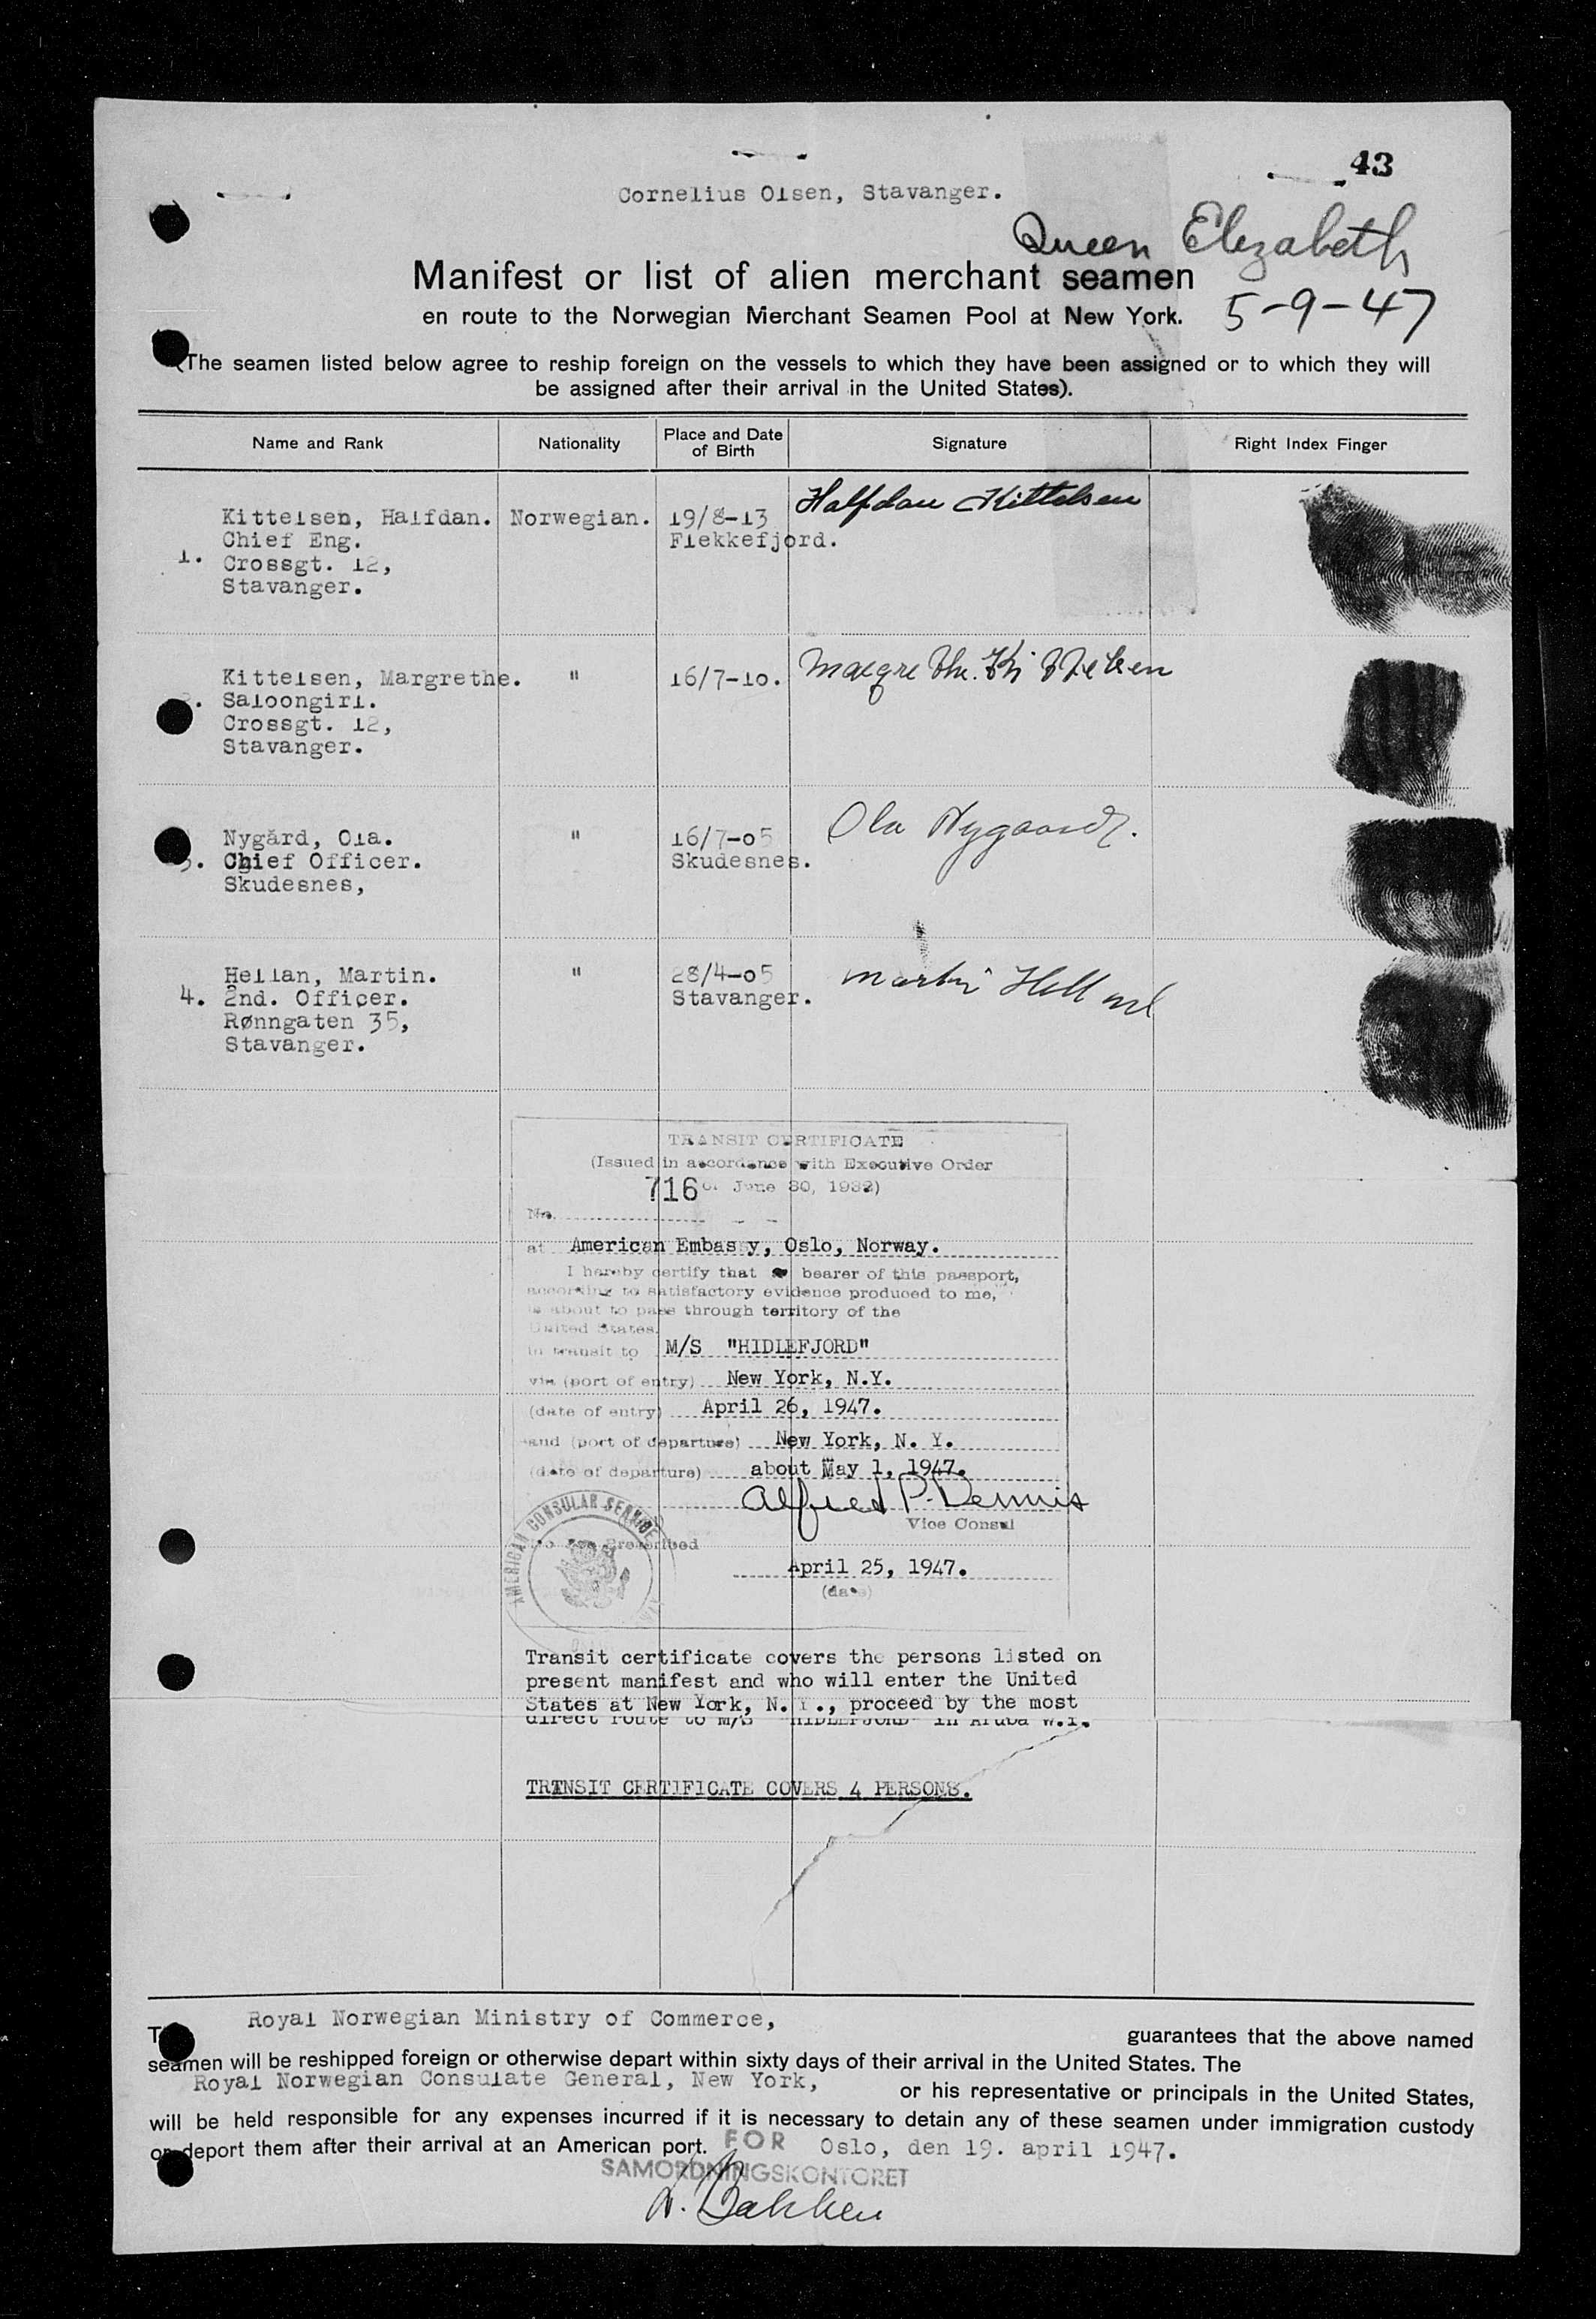 43
Cornelius Olsen, Stavanger.
Queen Elizabeth
Manifest or list of alien merchant seamen
en route to the Norwegian Merchant Seamen Pool at New York. 5-9-47
(The seamen listed below agree to reship foreign on the vessels to which they have been assigned or to which they will
be assigned after their arrival in the United States).
Name and Rank Nationality Place and Date of Birth Signature Right Index Finger
Kittelsen, Halfdan. Norwegian. 19/8-13 Halfdan Kittelsen
Chief Eng. Flekkefjord.
1. Crossgt. 12,
Stavanger.
Kittelsen, Margrethe. " 16/7-10. Margrethe Kittelsen
Saloongirl.
Crossgt. 12,
Stavanger.
Nygård, Ola. " 16/7-05 Ola Nygaard.
3. Chief Officer. Skudesnes.
Skudesnes,
Hellan, Martin. " 28/4-05 Martin Helland
4. 2nd. Officer. Stavanger.
Rønngaten 35,
Stavanger.
TRANSIT CERTIFICATE
(Issued in accordance with Executive Order
716 of June 30, 1932)
No.
at American Embassy, Oslo, Norway.
I hereby certify that bearer of this passport,
according to satisfactory evidence produced to me,
is about to pass through territory of the
United States.
in transit to M/S "HIDLEFJORD"
via (port of entry) New York, N.Y.
(date of entry) April 26, 1947.
and (port of departure) New York, N. Y.
(date of departure) about May 1, 1947.
Alfred P. Dennis
Vice Consul
AMERICAN CONSULAR SERVICE
No Fee Prescribed
April 25, 1947.
(date)
Transit certificate covers the persons listed on
present manifest and who will enter the United
States at New York, N.Y., proceed by the most
direct route to M/S "HIDLEFJORD" in Aruba W.I.
TRANSIT CERTIFICATE COVERS 4 PERSONS.
The Royal Norwegian Ministry of Commerce, guarantees that the above named
seamen will be reshipped foreign or otherwise depart within sixty days of their arrival in the United States. The
Royal Norwegian Consulate General, New York, or his representative or principals in the United States,
will be held responsible for any expenses incurred if it is necessary to detain any of these seamen under immigration custody
or deport them after their arrival at an American port. FOR Oslo, den 19. april 1947.
SAMORDNINGSKONTORET
Bakken